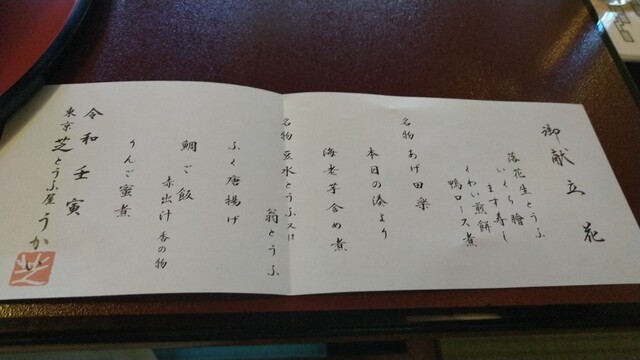 御献立 花
落花生とうふ
いくら膾
ます寿し
くわい煎餅
鴨ロース煮
名物 あげ田楽
本日の湊より
海老芋含め煮
名物 豆水とうふ又は
翁とうふ
ふく唐揚げ
鯛ご飯
赤出汁 香の物
りんご蜜煮
令和 壬寅
東京 芝 とうふ屋 うかい